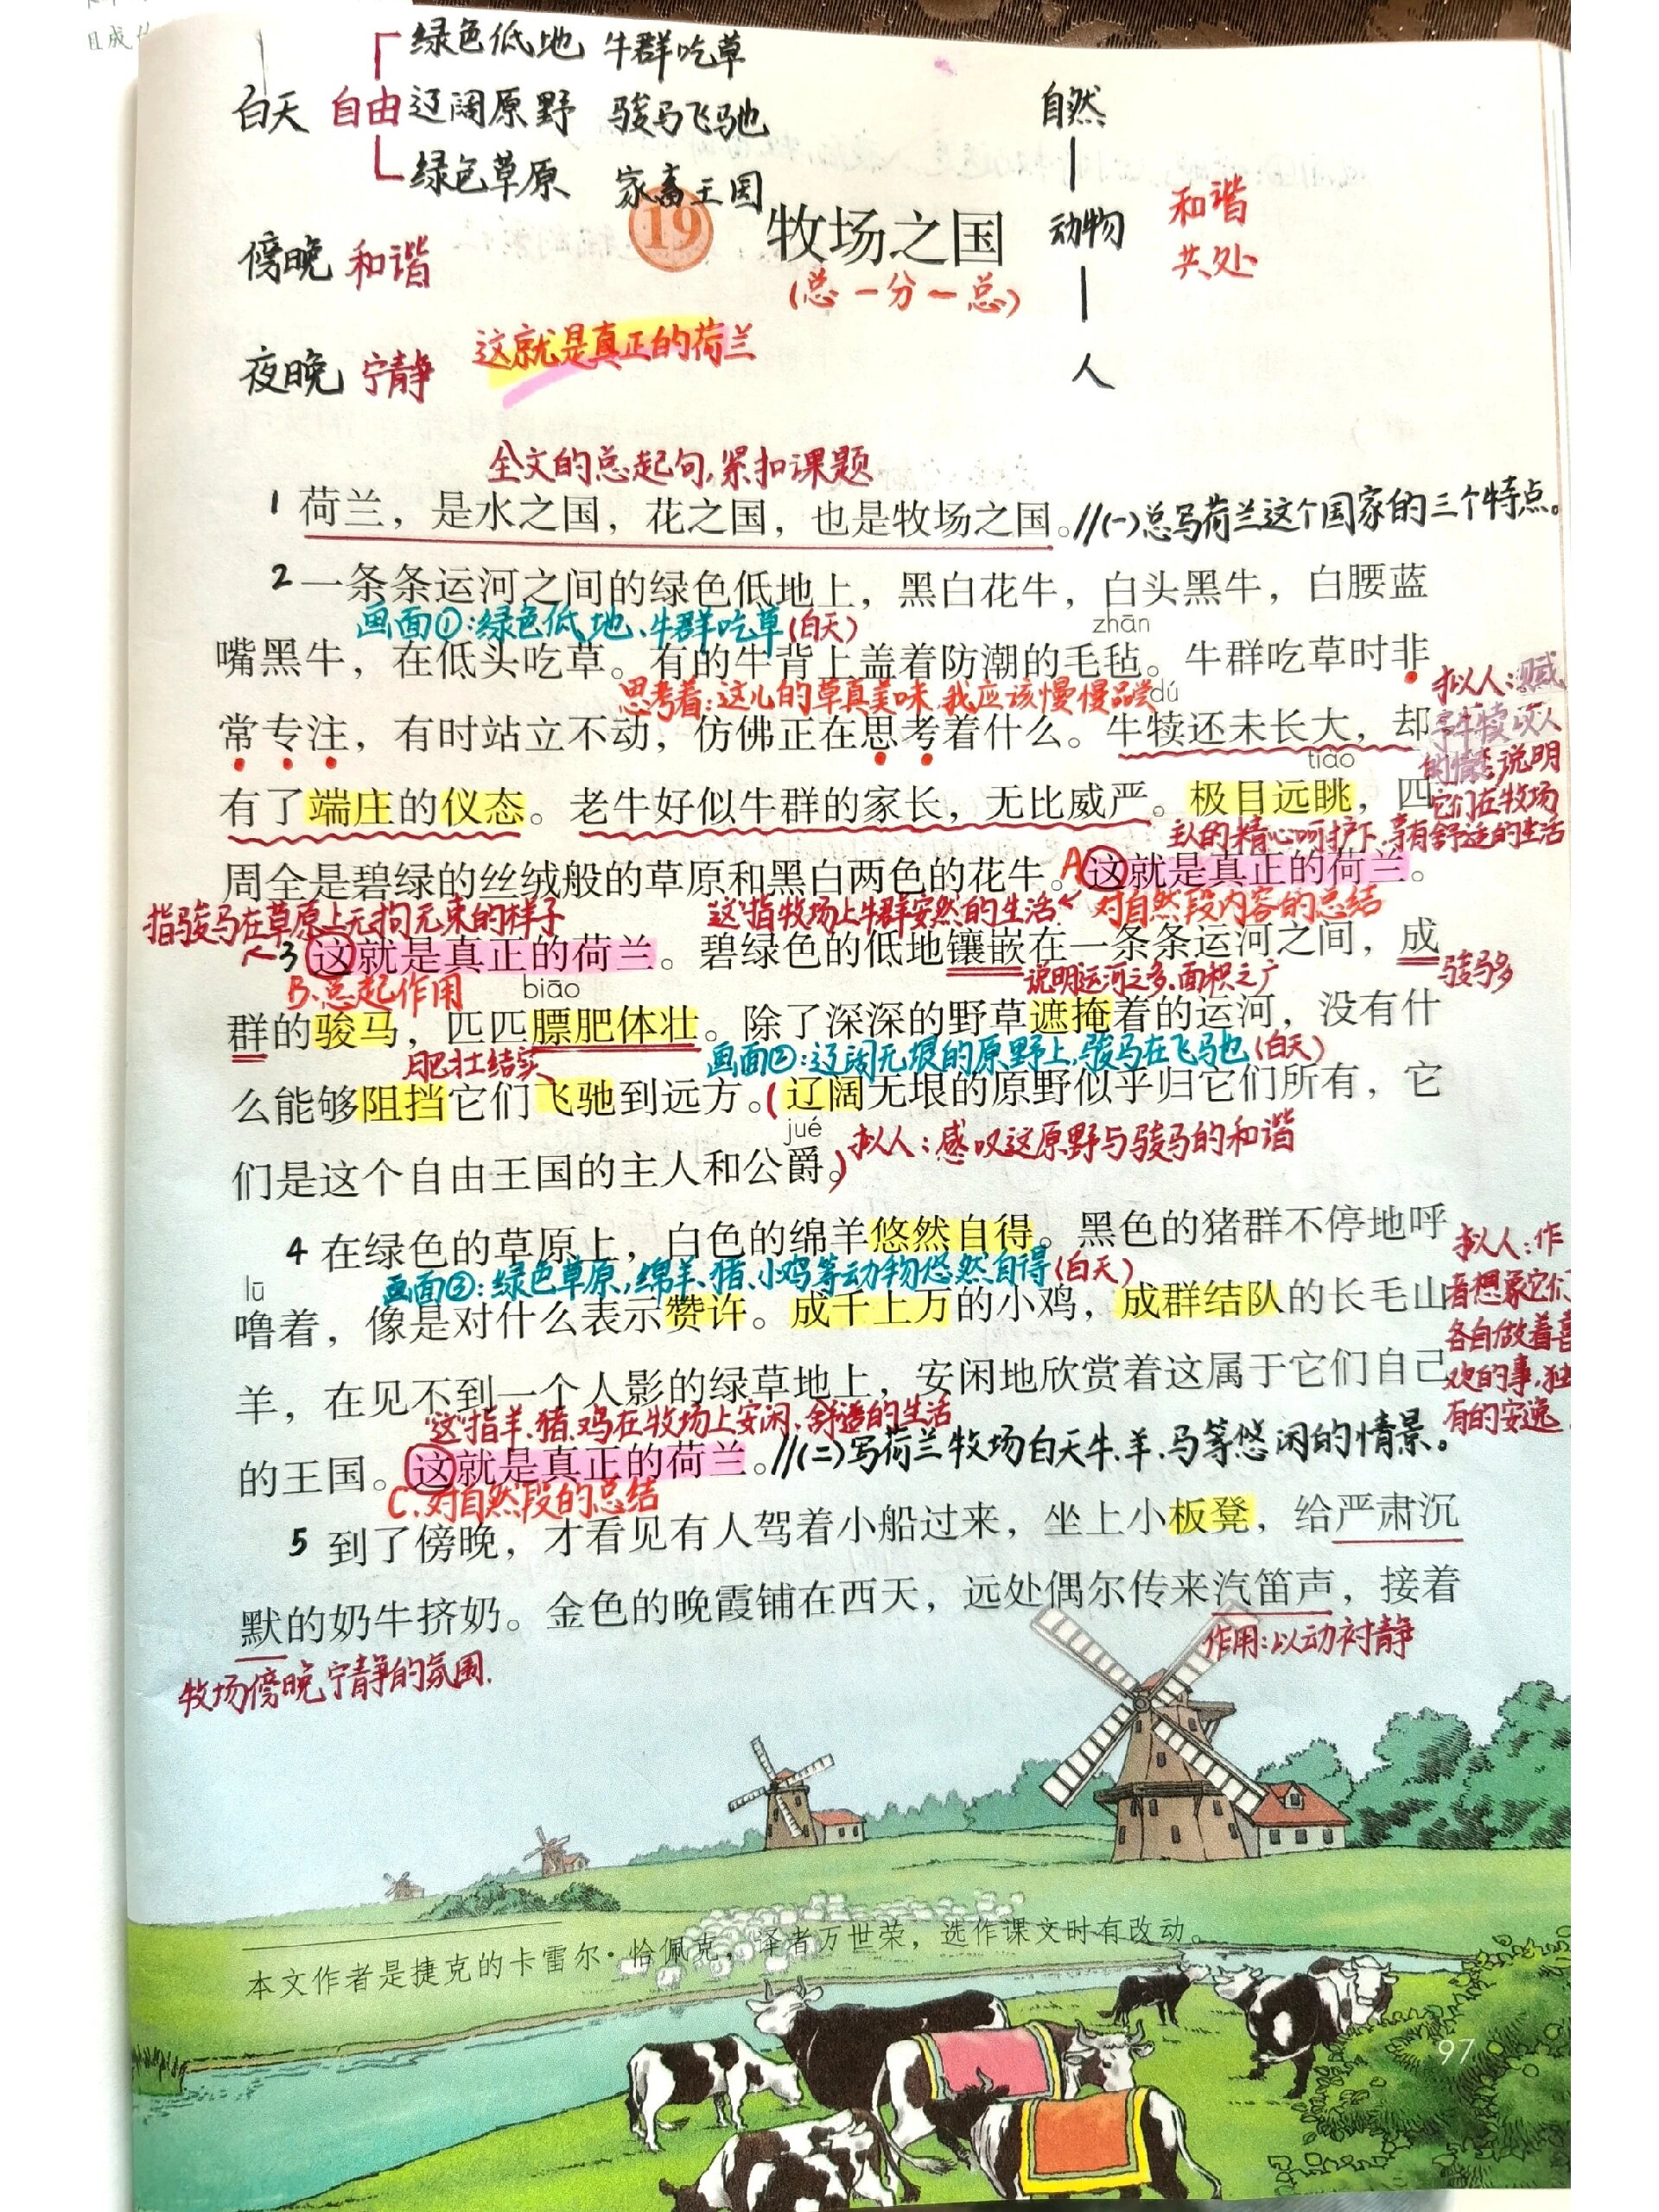 绿色低地 牛群吃草
白天 自由 辽阔原野 骏马飞驰
绿色草原 家畜王国
自然
动物
人
和谐
共处
19 牧场之国
(总一分一总)
傍晚 和谐
夜晚 宁静
这就是真正的荷兰
全文的总起句,紧扣课题
1 荷兰，是水之国，花之国，也是牧场之国。//(一)总写荷兰这个国家的三个特点。
2 一条条运河之间的绿色低地上，黑白花牛，白头黑牛，白腰蓝
画面①:绿色低地、牛群吃草(白天)
zhān
嘴黑牛，在低头吃草。有的牛背上盖着防潮的毛毡。牛群吃草时非
思考着:这儿的草真美味,我应该慢慢品尝
dú
常专注，有时站立不动，仿佛正在思考着什么。牛犊还未长大，却
拟人:赋
予牛犊以人
的情态,说明
它们在牧场
主人的精心呵护下,享有舒适的生活
tiào
有了端庄的仪态。老牛好似牛群的家长，无比威严。极目远眺，四
周全是碧绿的丝绒般的草原和黑白两色的花牛。A这就是真正的荷兰。
指骏马在草原上无拘无束的样子
"这"指牧场上牛群安然的生活
对自然段内容的总结
3 这就是真正的荷兰。碧绿色的低地镶嵌在一条条运河之间，成
B、总起作用
biāo
说明运河之多,面积之广
骏马多
群的骏马，匹匹膘肥体壮。除了深深的野草遮掩着的运河，没有什
肥壮结实
画面②:辽阔无垠的原野上,骏马在飞驰(白天)
么能够阻挡它们飞驰到远方。(辽阔无垠的原野似乎归它们所有，它
jué
拟人:感叹这原野与骏马的和谐
们是这个自由王国的主人和公爵。)
4 在绿色的草原上，白色的绵羊悠然自得。黑色的猪群不停地呼
lū
画面③:绿色草原,绵羊、猪、小鸡等动物悠然自得(白天)
噜着，像是对什么表示赞许。成千上万的小鸡，成群结队的长毛山
拟人:作
者想象它们
各自做着喜
欢的事,独
有的安逸
羊，在见不到一个人影的绿草地上，安闲地欣赏着这属于它们自己
"这"指羊、猪、鸡在牧场上安闲、舒适的生活
的王国。这就是真正的荷兰。//(二)写荷兰牧场白天牛、羊、马等悠闲的情景。
C、对自然段的总结
5 到了傍晚，才看见有人驾着小船过来，坐上小板凳，给严肃沉
默的奶牛挤奶。金色的晚霞铺在西天，远处偶尔传来汽笛声，接着
作用:以动衬静
牧场傍晚宁静的氛围.
本文作者是捷克的卡雷尔·恰佩克，译者万世荣，选作课文时有改动。
97